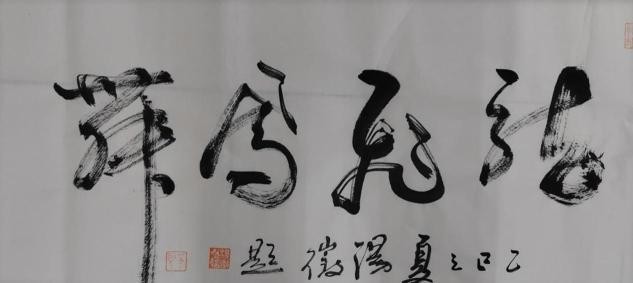 龍飛鳳舞
乙巳之夏湯 題